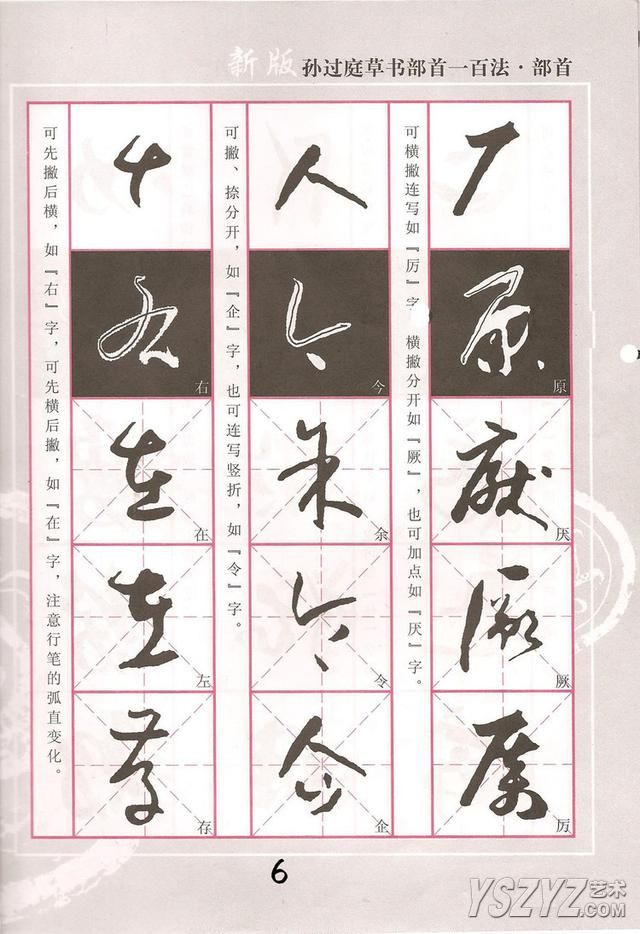 新版 孙过庭草书部首一百法·部首
厂
原
厌
厥
厉
可横撇连写如『厉』字,横撇分开如『厥』,也可加点如『厌』字。
人
今
余
令
企
可撇、捺分开,如『企』字,也可连写竖折,如『令』字。
右
在
左
存
可先撇后横,如『右』字,可先横后撇,如『在』字,注意行笔的弧直变化。
6
YSZYZ艺术
.COM